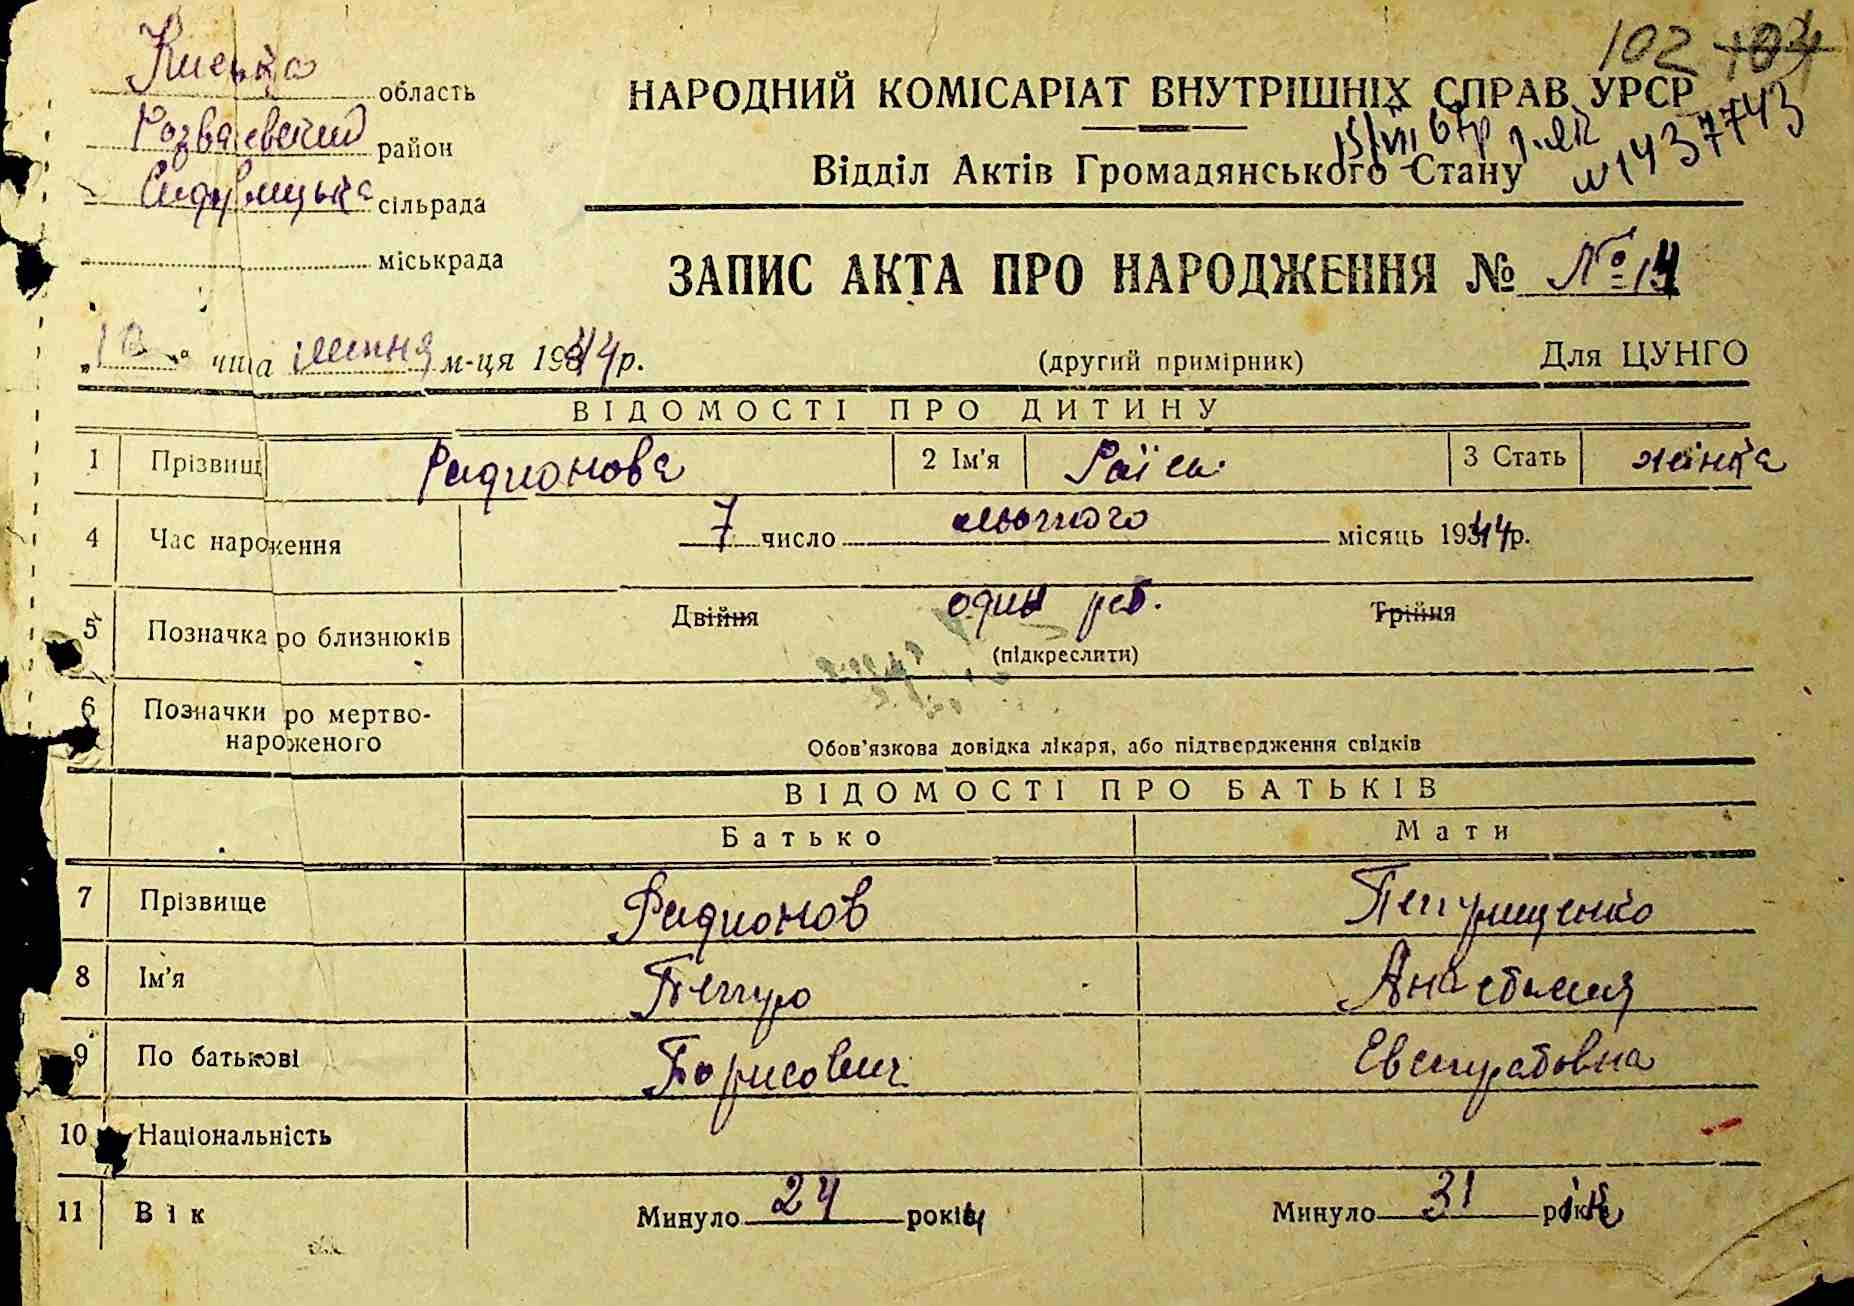 102 104
Київська область
Розваєвский район
Сидоровицька сільрада
міськрада
НАРОДНИЙ КОМІСАРІАТ ВНУТРІШНІХ СПРАВ УРСР
Відділ Актів Громадянського Стану
15/VII 67р №1437743
ЗАПИС АКТА ПРО НАРОДЖЕННЯ № №14
"10" числа липня м-ця 1944 р.
(другий примірник)
Для ЦУНГО
ВІДОМОСТІ ПРО ДИТИНУ
1 Прізвищ Радионова 2 Ім'я Раїса 3 Стать жінка
4 Час народження 7 число лютого місяць 1944 р.
5 Позначка про близнюків Двійня один реб. Трійня
(підкреслити)
6 Позначки про мертво-
народженого
Обов'язкова довідка лікаря, або підтвердження свідків
ВІДОМОСТІ ПРО БАТЬКІВ
Батько Мати
7 Прізвище Радионов Петрищенко
8 Ім'я Петро Анастасия
9 По батькові Борисович Евстратовна
10 Національність
11 Вік Минуло 24 роки Минуло 31 рік